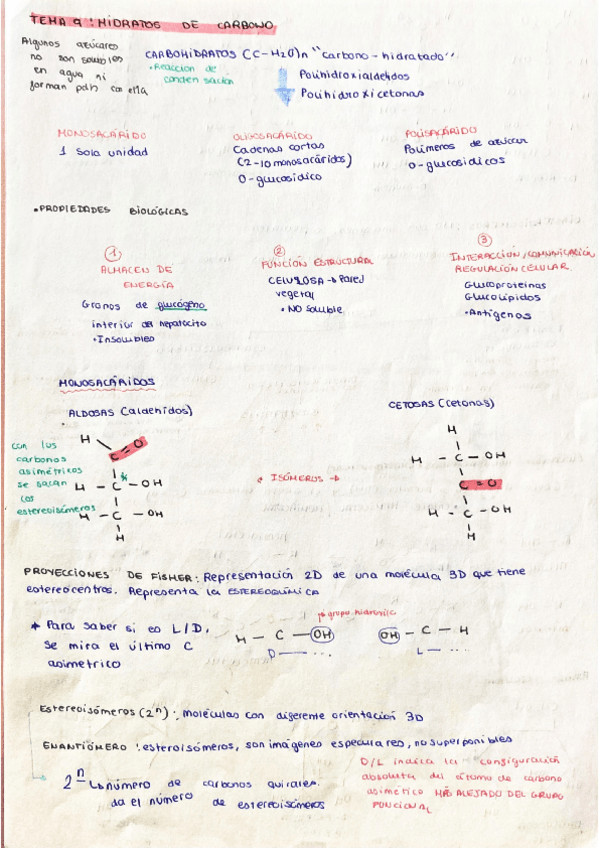 TEMA 9: HIDRATOS DE CARBONO
Algunos azúcares
no son solubles
en agua ni
forman pdh con ella
CARBOHIDRATOS (C-H2O)n "carbono-hidratado"
• Reacción de
condensación
Polihidroxialdehidos
Polihidroxicetonas
MONOSACÁRIDO
1 Sola unidad
OLIGOSACÁRIDO
Cadenas cortas
(2-10 monosacáridos)
O-glucosídico
POLISACÁRIDO
Polímeros de azúcar
O-glucosídicos
• PROPIEDADES BIOLÓGICAS
1
ALMACEN DE
ENERGÍA
Granos de glucógeno
interior del hepatocito
• Insolubles
2
FUNCIÓN ESTRUCTURAL
CELULOSA → Pared
vegetal
• NO soluble
3
INTERACCIÓN, COMUNICACIÓN
REGULACIÓN CELULAR
Glucoproteínas
Glucolípidos
• Antígenos
MONOSACÁRIDOS
ALDOSAS (aldehidos)
CETOSAS (cetonas)
con los
carbonos
asimétricos
se sacan
los
estereoisómeros
H
C = O
H - C* - OH
H - C - OH
H
• ISÓMEROS →
H
H - C - OH
C = O
H - C - OH
H
PROYECCIONES DE FISHER: Representación 2D de una molécula 3D que tiene
estereocentros. Representa la ESTEREOQUÍMICA
* Para saber si es L/D,
se mira el último C
asimetrico
grupo hidroxilo
H - C - OH
D ...
OH - C - H
L ...
Estereoisómeros (2^n): moléculas con diferente orientación 3D
ENANTIÓMERO: estereoisómeros, son imágenes especulares, no superponibles
2^n número de carbonos quirales.
da el número de estereoisómeros
D/L indica la configuración
absoluta del átomo de carbono
asimétrico MÁS ALEJADO DEL GRUPO
FUNCIONAL